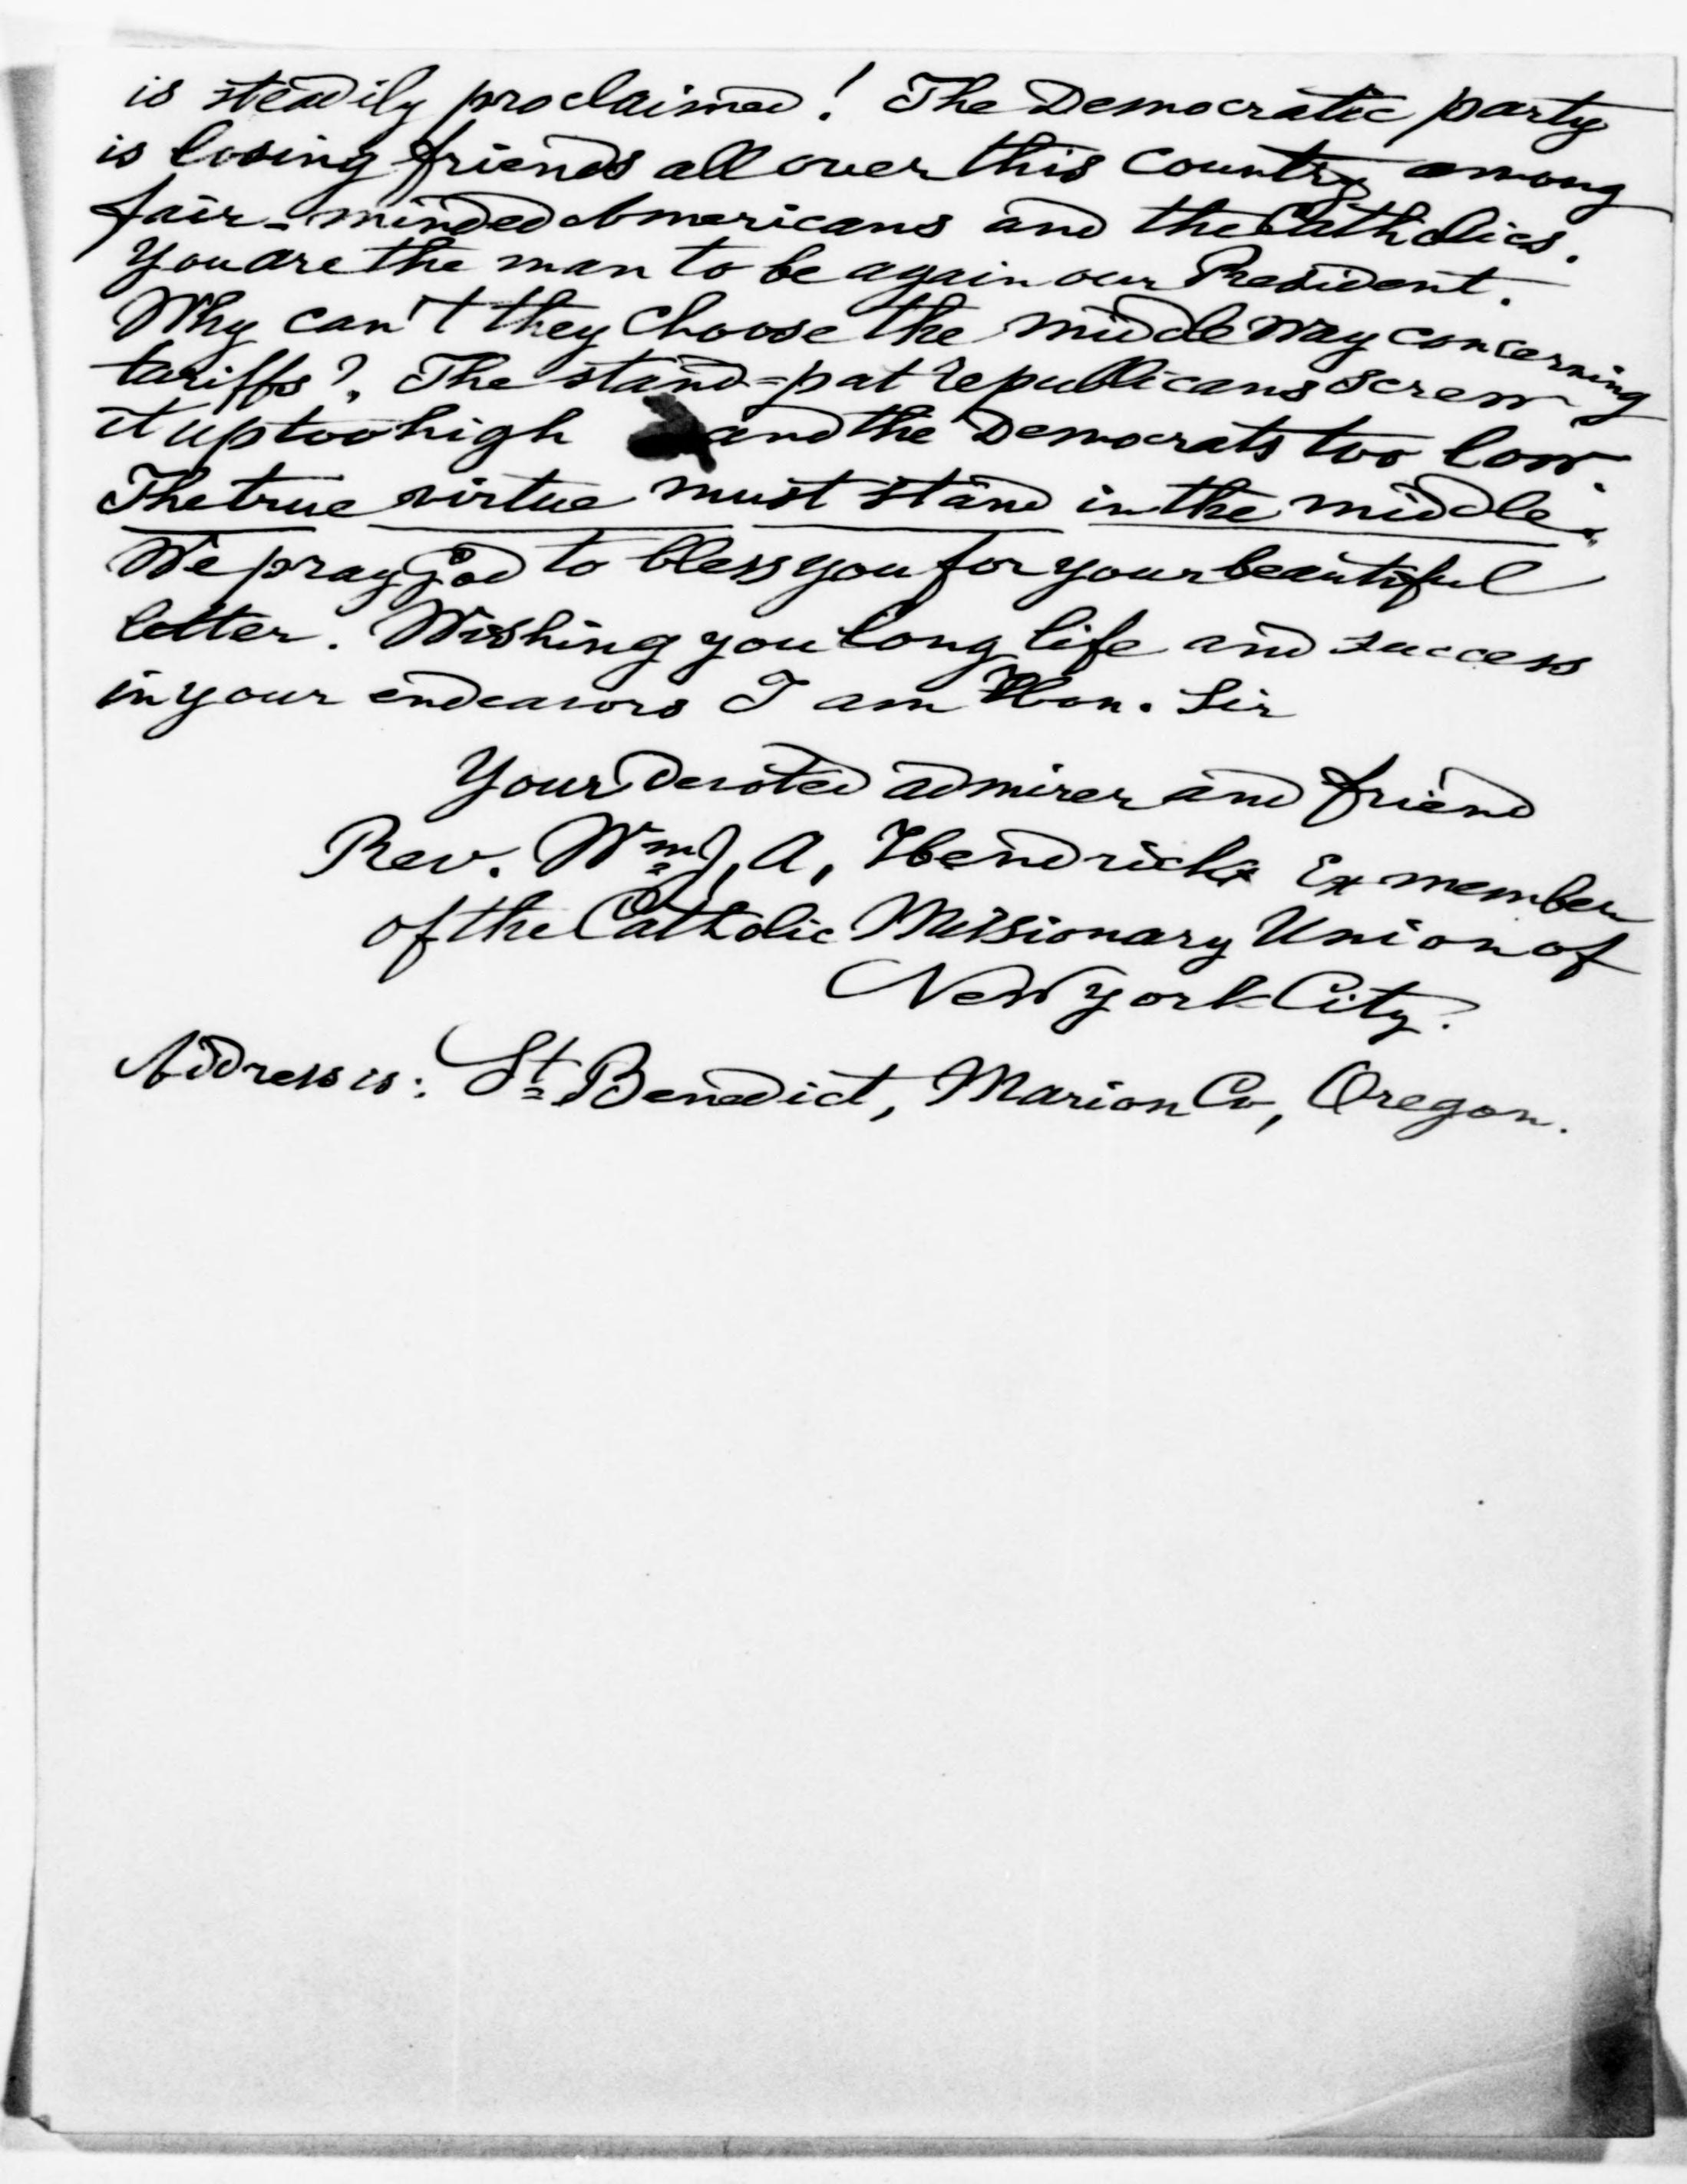 is steadily proclaimed! The Democratic party
is losing friends all over this country among
fair-minded Americans and the Catholics.
You are the man to be again our President.
Why can't they choose the middle way concerning
tariffs? The stand=pat republicans screw
it up too high and the Democrats too low.
The true virtue must stand in the middle.
We pray God to bless you for your beautiful
letter. Wishing you long life and success
in your endeavors I am Hon. Sir
Your devoted admirer and friend
Rev. Wm J, A, Hendrickx Ex member
of the Catholic Missionary Union of
New York City.
Address is: St Benedict, Marion Co, Oregon.